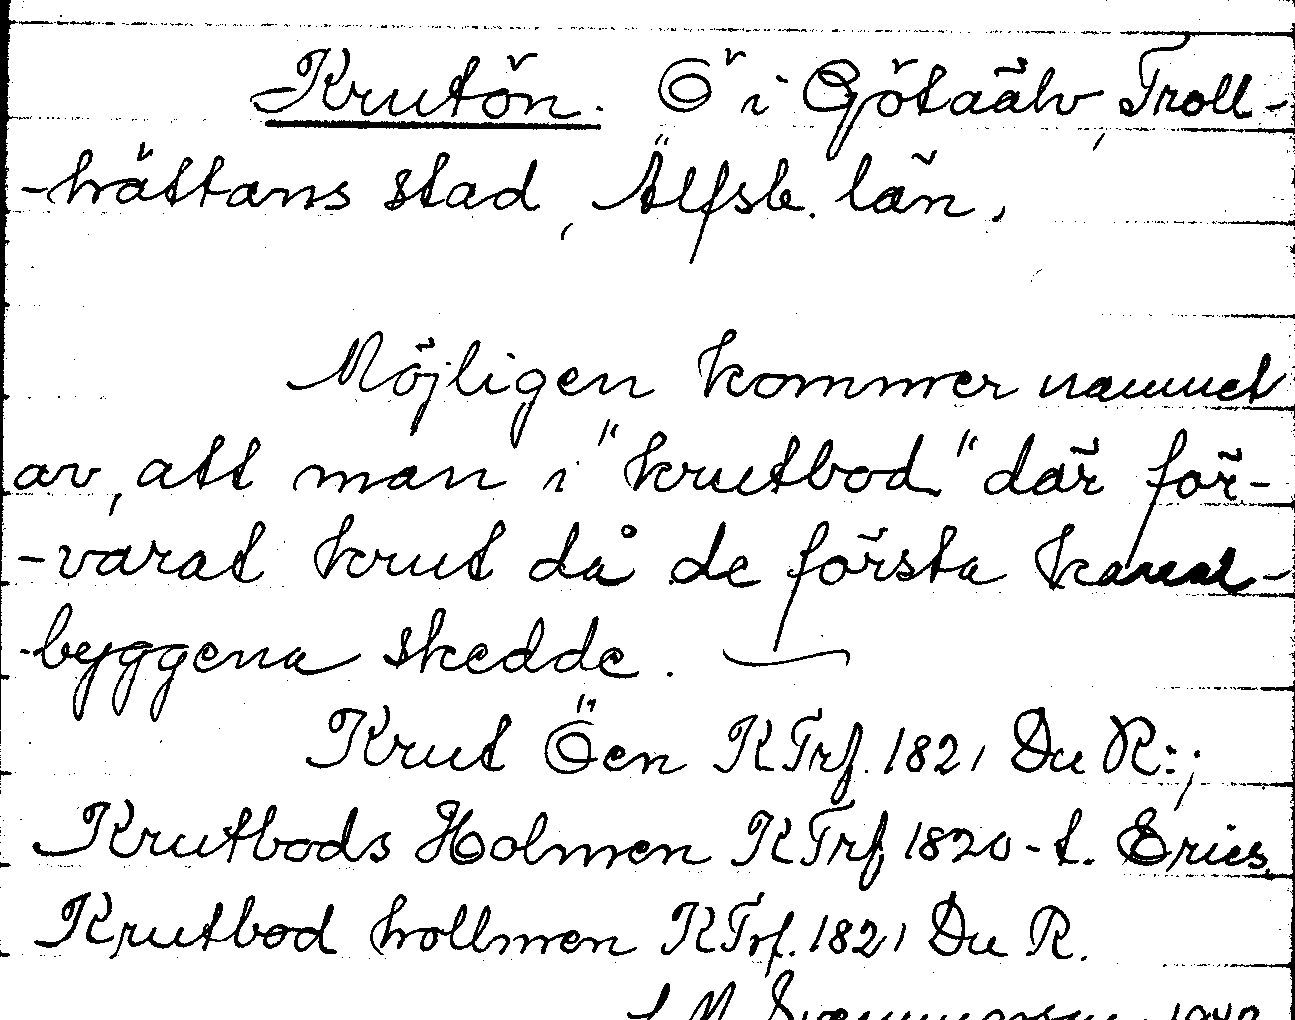 Krutön. Ö i Götaälv, Troll-
-hättans stad, Älfsb. län.
Möjligen kommer namnet
av, att man i "krutbod" där för-
-varat krut då de första kanal-
-byggena skedde.
Krut Öen KTrf. 1821 Du R:;
Krutbods Holmen KTrf 1820-t. Erics.
Krutbod hollmen KTrf. 1821 Du R.